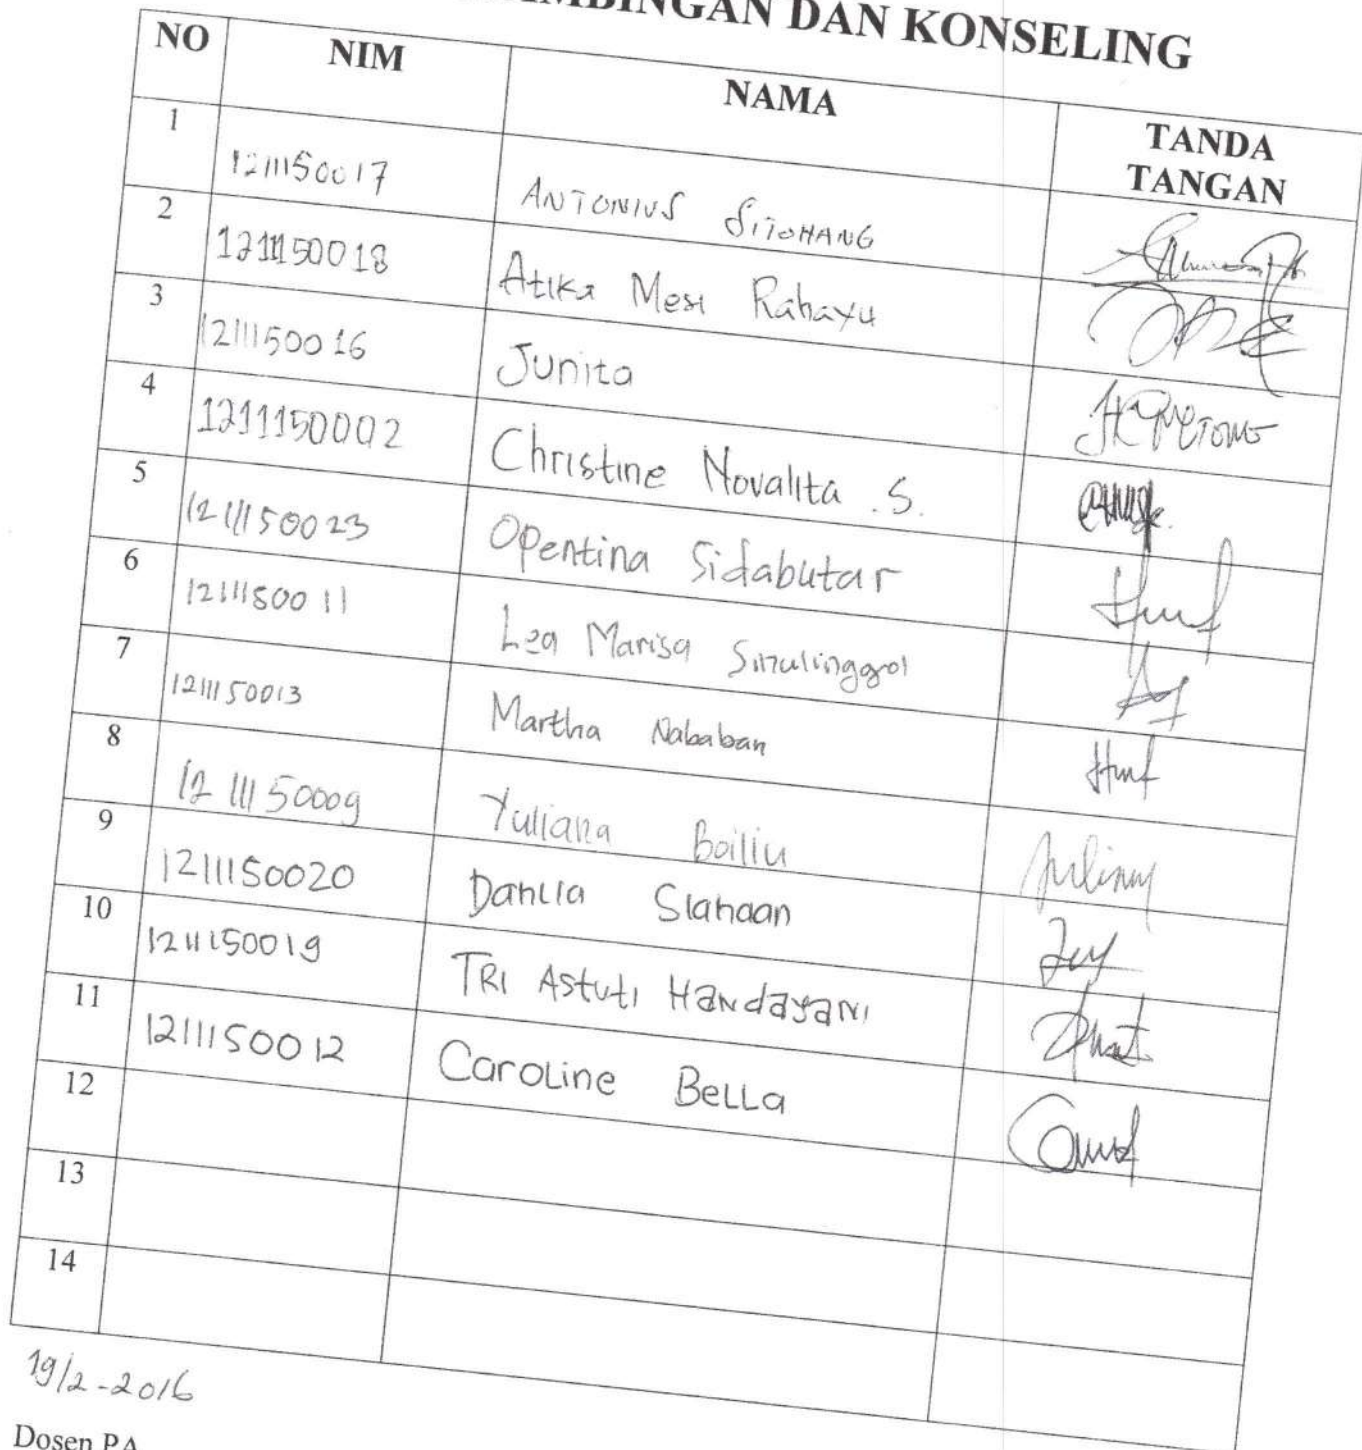 DAN KONSELING
NO NIM NAMA TANDA TANGAN
1 1211150017 ANTONIUS SITOHANG
2 1211150018 Atika Mesi Rahayu
3 1211150016 Junita
4 1211150002 Christine Novalita .S.
5 1211150023 Opentina Sidabutar
6 1211150011 Lea Marisa
7 1211150013 Martha Nababan
8 1211150009 Yuliana Boiliu
9 1211150020 Dahlia Siahaan
10 1211150019 TRI Astuti Handayani
11 1211150012 Caroline Bella
12
13
14
19/2-2016
Dosen PA